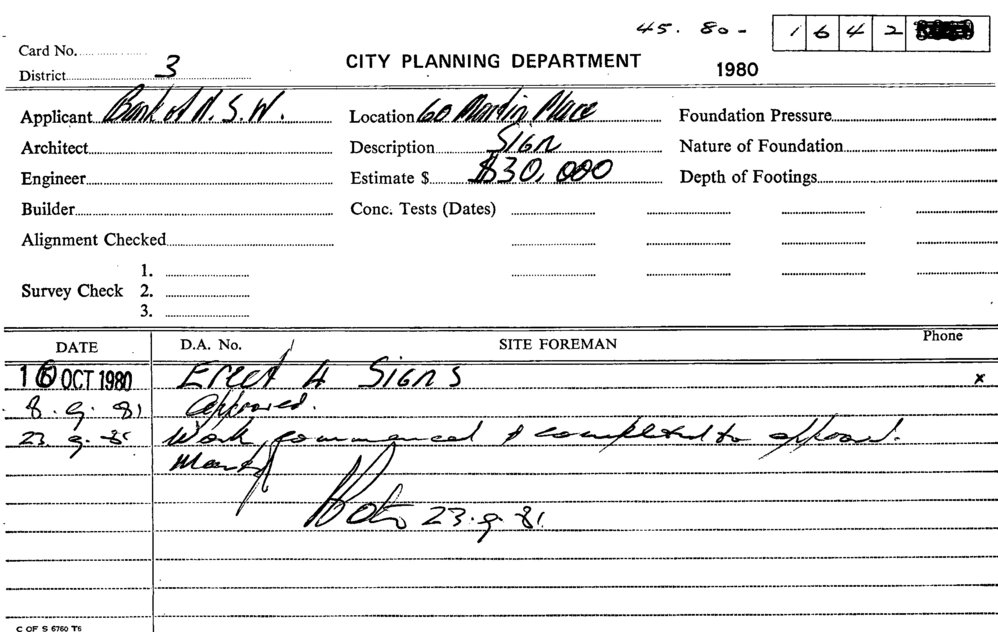 45. 80- 1 6 4 2
Card No.
District 3
CITY PLANNING DEPARTMENT 1980
Applicant Bank of N.S.W. Location 60 Martin Place Foundation Pressure
Architect Description SIGN Nature of Foundation
Engineer Estimate $ $30,000 Depth of Footings
Builder Conc. Tests (Dates)
Alignment Checked
1.
Survey Check 2.
3.
DATE D.A. No. SITE FOREMAN Phone
16 OCT 1980 Erect 4 SIGNS x
8.9.81 Approved.
23.9.81 Work commenced & completed to
23.9.81
C OF S 6760 T6